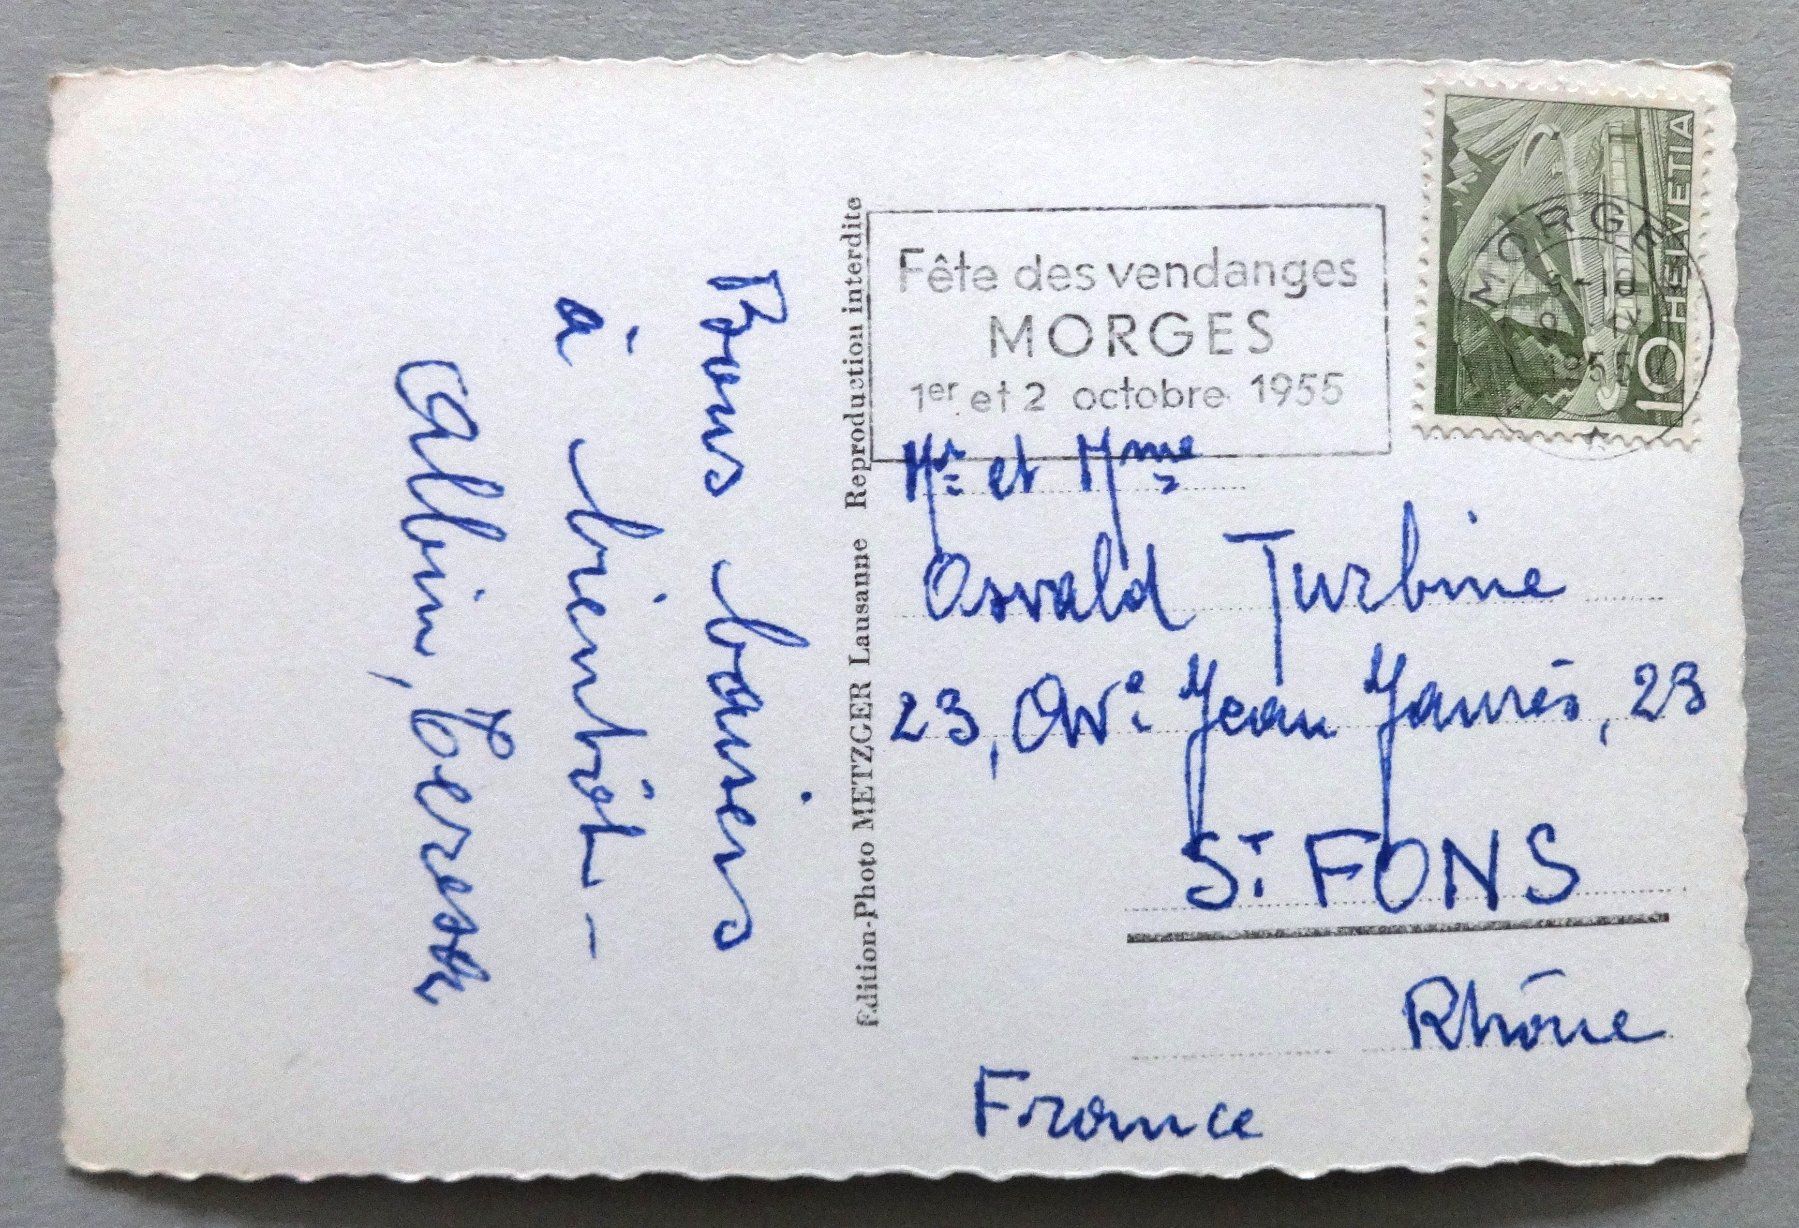 Bons baisers
à bientôt -
Albin, Teresa
Edition-Photo METZGER Lausanne Reproduction interdite
Fête des vendanges
MORGES
1er et 2 octobre 1955
HELVETIA
10
MORGES
1955
Mr et Mme
Osvald Turbine
23, Ave Jean Jaurès, 23
St FONS
Rhône
France